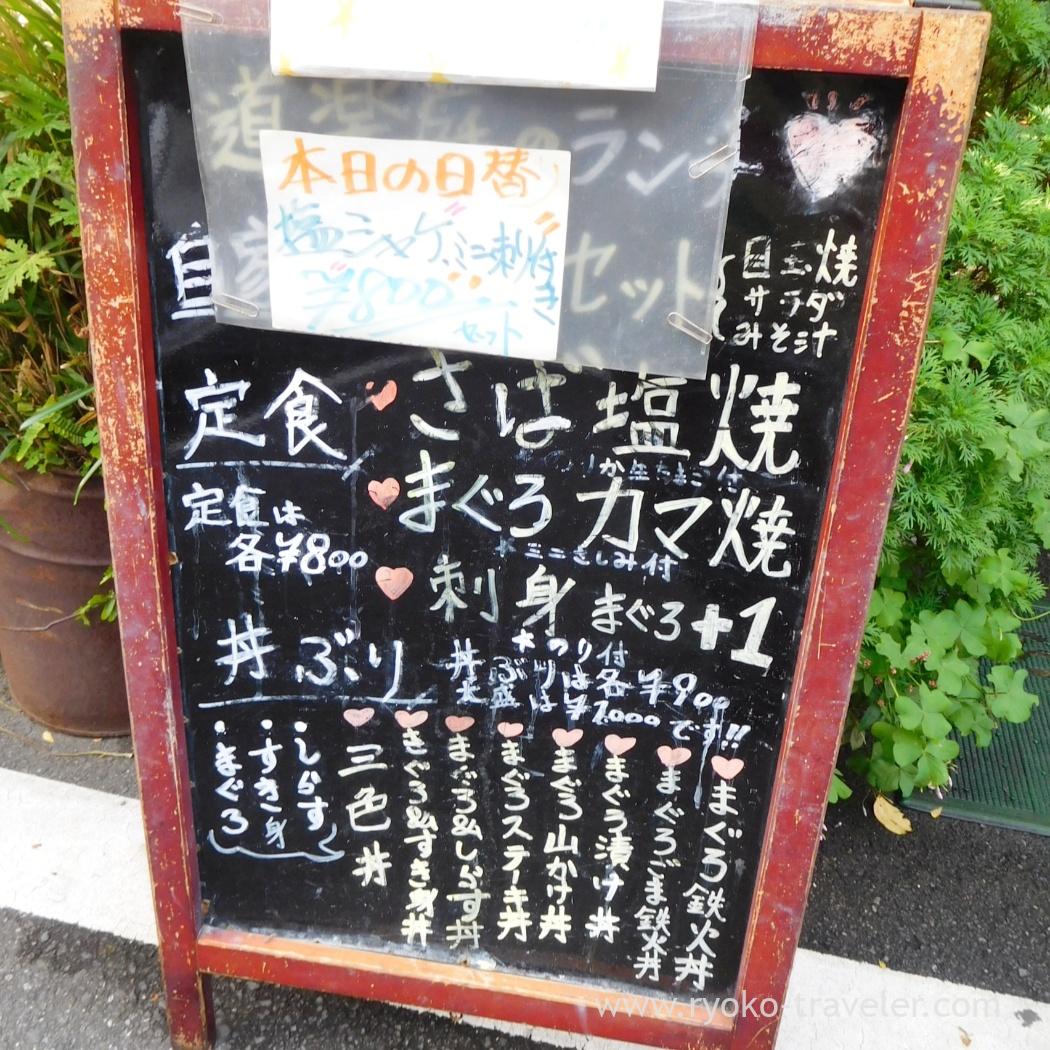 道楽庵のランチ
本日の日替り
塩シャケ、ミニ刺付き
¥800-
セット
自家
セット
目玉焼
サラダ
みそ汁
定食
さば塩焼
まぐろカマ焼
定食は
各¥800
*ミニさしみ付
刺身 まぐろ+1
*のり付
丼ぶり
丼ぶりは各¥900
大盛は¥1,000です!!
まぐろ鉄火丼
まぐろごま鉄火丼
まぐろ漬け丼
まぐろ山かけ丼
まぐろステーキ丼
まぐろ&しらす丼
まぐろ&すき身丼
三色丼
・しらす
・すき身
・まぐろ
www.ryoko-traveler.com